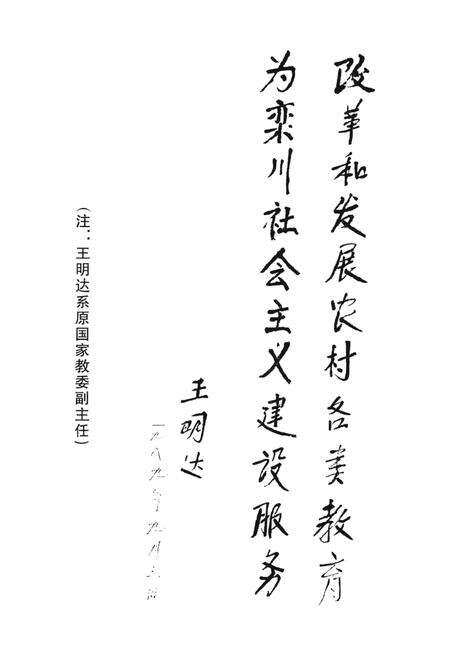 改革和发展农村各类教育
为栾川社会主义建设服务
王明达
一九八九年九月三日
(注：王明达系原国家教委副主任)